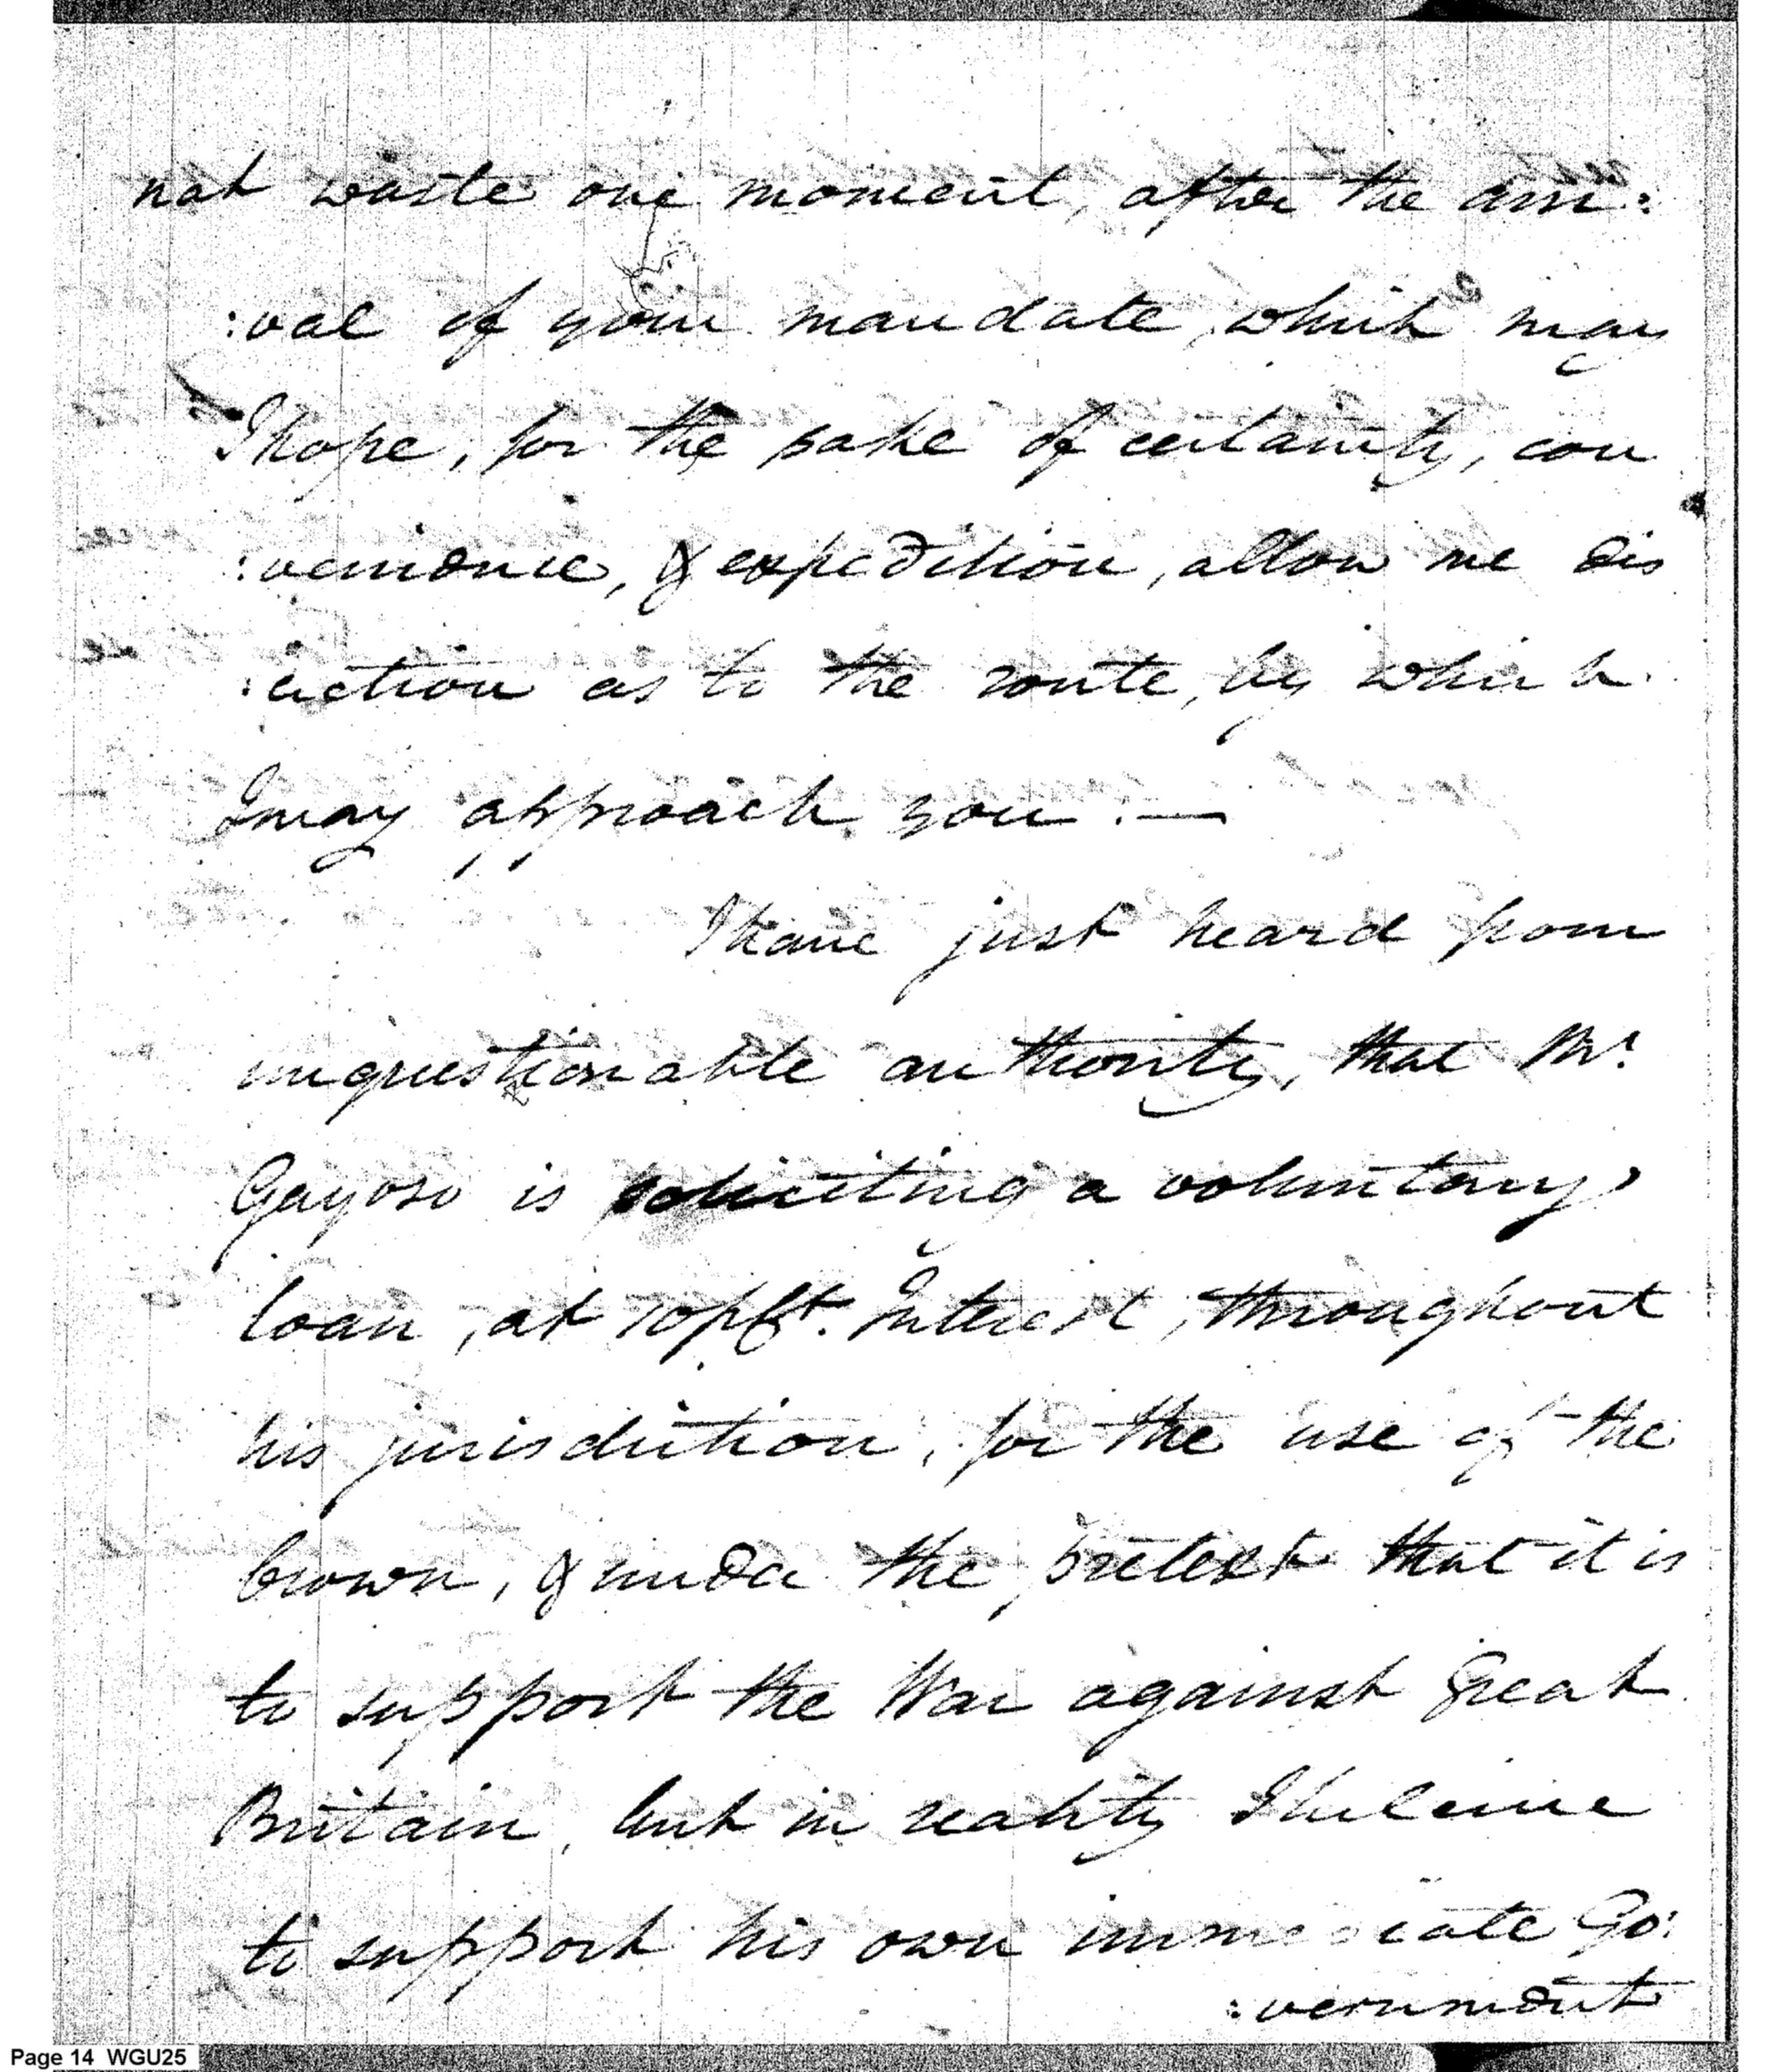 not waste one moment, after the arri:
:val of your mandate, which may
I hope, for the sake of certainty, con
:venience, & expedition, allow me dis
:cretion as to the route, by which
I may approach you.—
I have just heard from
unquestionable authority, that Mr.
Gayoso is soliciting a voluntary
loan, at 10 pCt. Interest, throughout
his jurisdiction, for the use of the
Crown, & under the pretext that it is
to support the War against Great
Britain, but in reality I believe
to support his own immediate Go:
:vernment
Page 14 WGU25